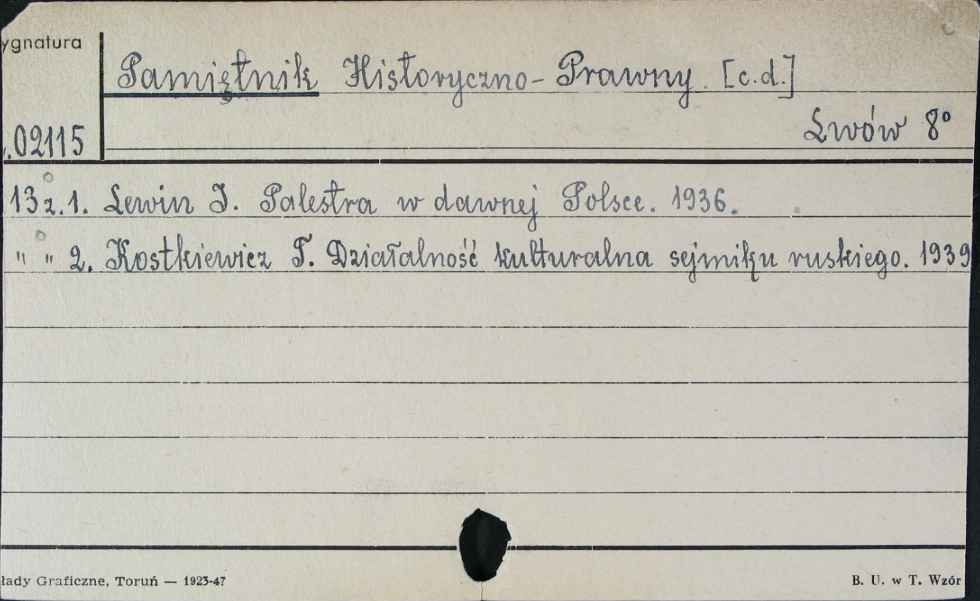 ygnatura
Pamiętnik Historyczno-Prawny. [c.d.]
.02115
Lwów 8°
13 z. 1. Lewin I. Palestra w dawnej Polsce. 1936.
" " 2. Kostkiewicz T. Działalność kulturalna sejmiku ruskiego. 1939
łady Graficzne, Toruń — 1923-47
B. U. w T. Wzór